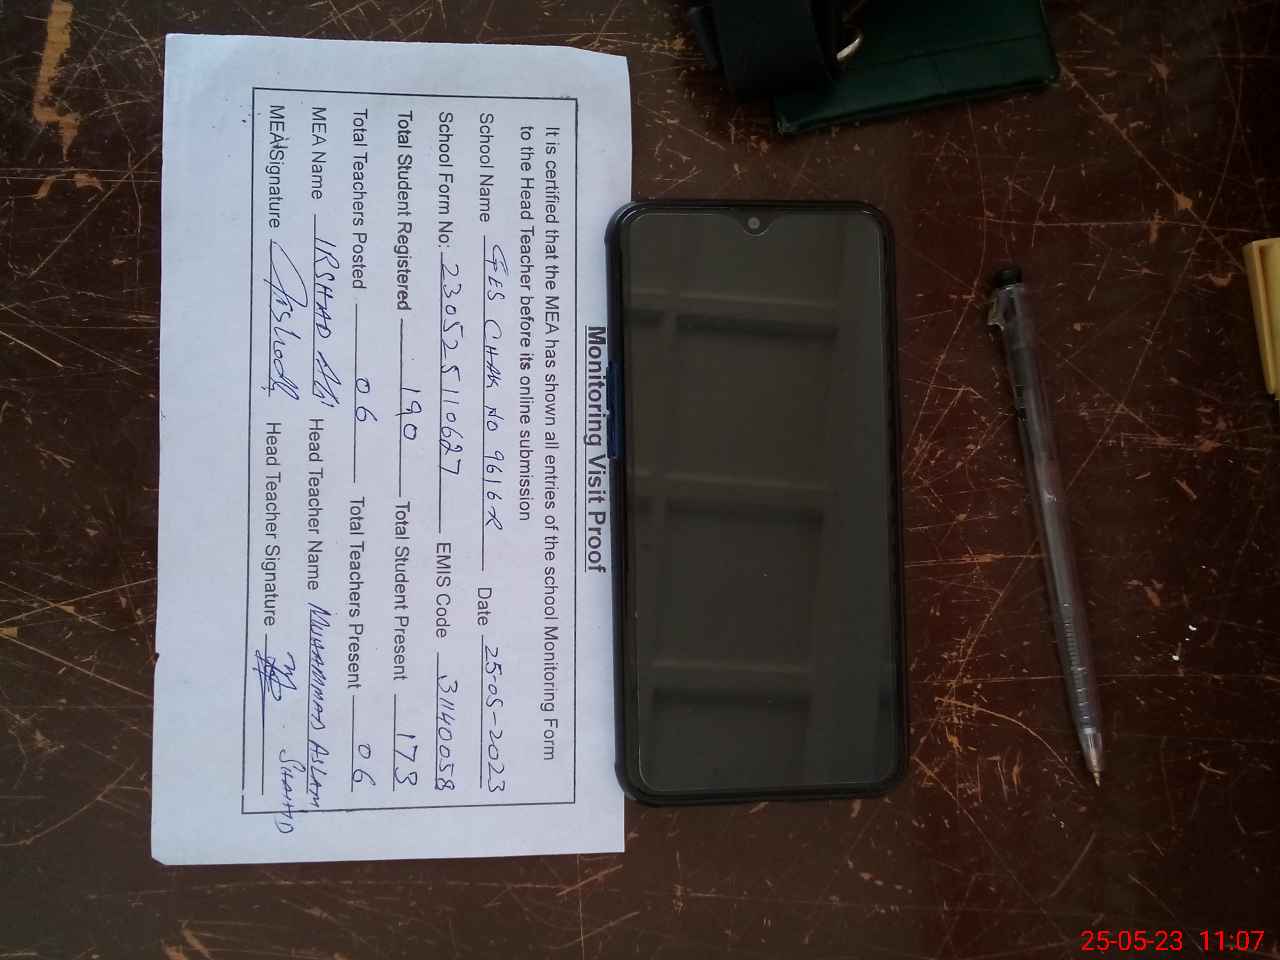 Monitoring Visit Proof
It is certified that the MEA has shown all entries of the school Monitoring Form
to the Head Teacher before its online submission
School Name GES CHAK NO 9616R Date 25-05-2023
School Form No: 230525110627 EMIS Code 31140058
Total Student Registered 190 Total Student Present 173
Total Teachers Posted 06 Total Teachers Present 06
MEA Name IRSHAD Ali Head Teacher Name MUHAMMAD ASLAM SHAHID
MEA Signature Head Teacher Signature
25-05-23 11:07